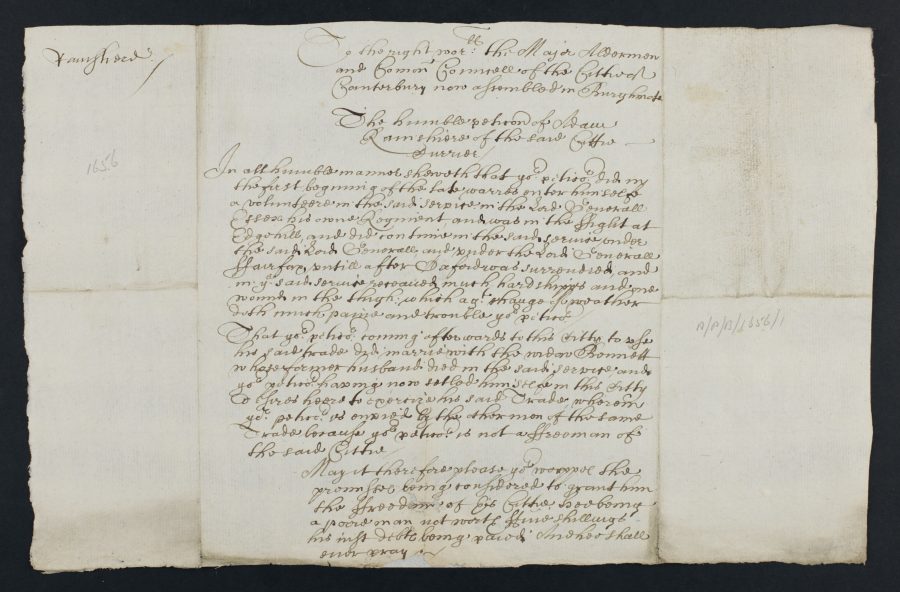 Ramshere
1656
To the right wor:ll the Major Aldermen
and Comon Councell of the Cittie of
Canterbury now assembled in Burghmote
The humble peticon of Adam
Ramshire of the said Cittie
Currier
In all humble manner sheweth that yor: peticor: did in
the first begining of the late warres enter himselfe
a volunteere in the said service in the Lord Generall
Essex his owne Regiment and was in the ffight at
Edgehill and did continue in the said service under
the said Lord Generall and vnder the Lord Generall
ffairfax vntill after Oxford was surrendred and
in ye said service received much hardshipps and one
wound in the thigh: which agt: change of weather
doth much paine and trouble yor: peticor:
That yor: peticor: coming afterwards to this Citty to vse
his said trade did marrie with the widow Bennett
whose former husband died in the said service and
yor: peticor: having now setled himselfe in this Citty
desires heere to exercize his said Trade wherein
yor: peticor: is envied by the other men of the same
Trade because yor: peticor: is not a ffreeman of
the said Cittie
May it therefore please yor: worppes the
premisses being considered to grant him
the ffreedome of this Cittie hee being
a poore man not worth ffive shillings
his iust debts being paied. And hee shall
ever pray
A/A/B/1656/1